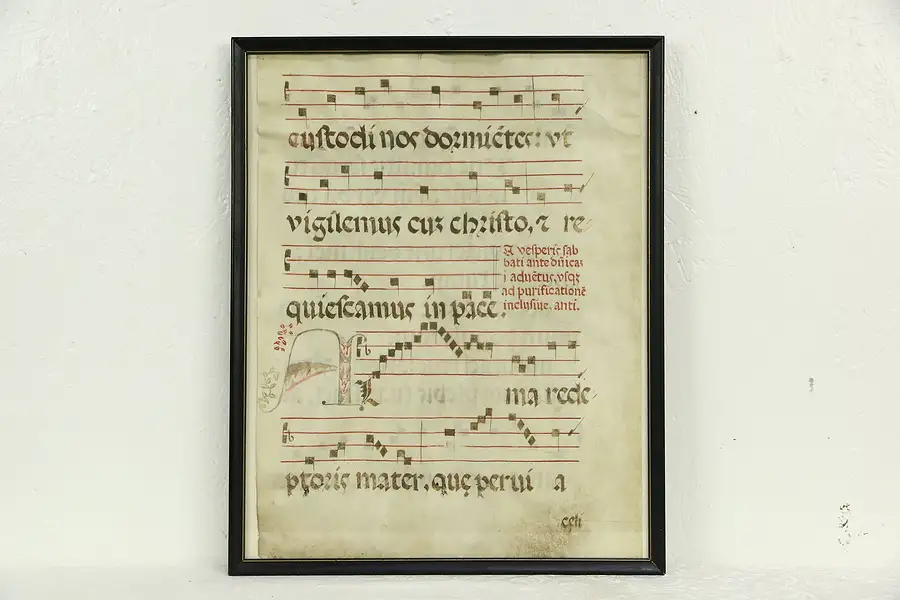 custodi nos dormiẽtes: vt
vigilemus cuz christo, ⁊ re-
quiescamus in pace.
A vesperis sab
bati ante dñicaz
i aduẽtus, vsqz
ad purificationẽ
inclusiue. anti.
ALma rede-
ptoris mater, quę perui a
cęli